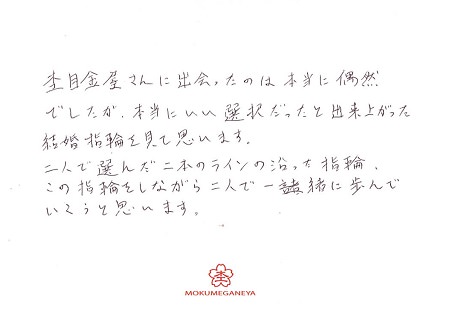 杢目金屋さんに出会ったのは本当に偶然
でしたが、本当にいい選択だったと出来上がった
結婚指輪を見て思います。
二人で選んだ二本のラインの沿った指輪、
この指輪をしながら二人で一諸緒に歩んで
いこうと思います。
杢
MOKUMEGANEYA